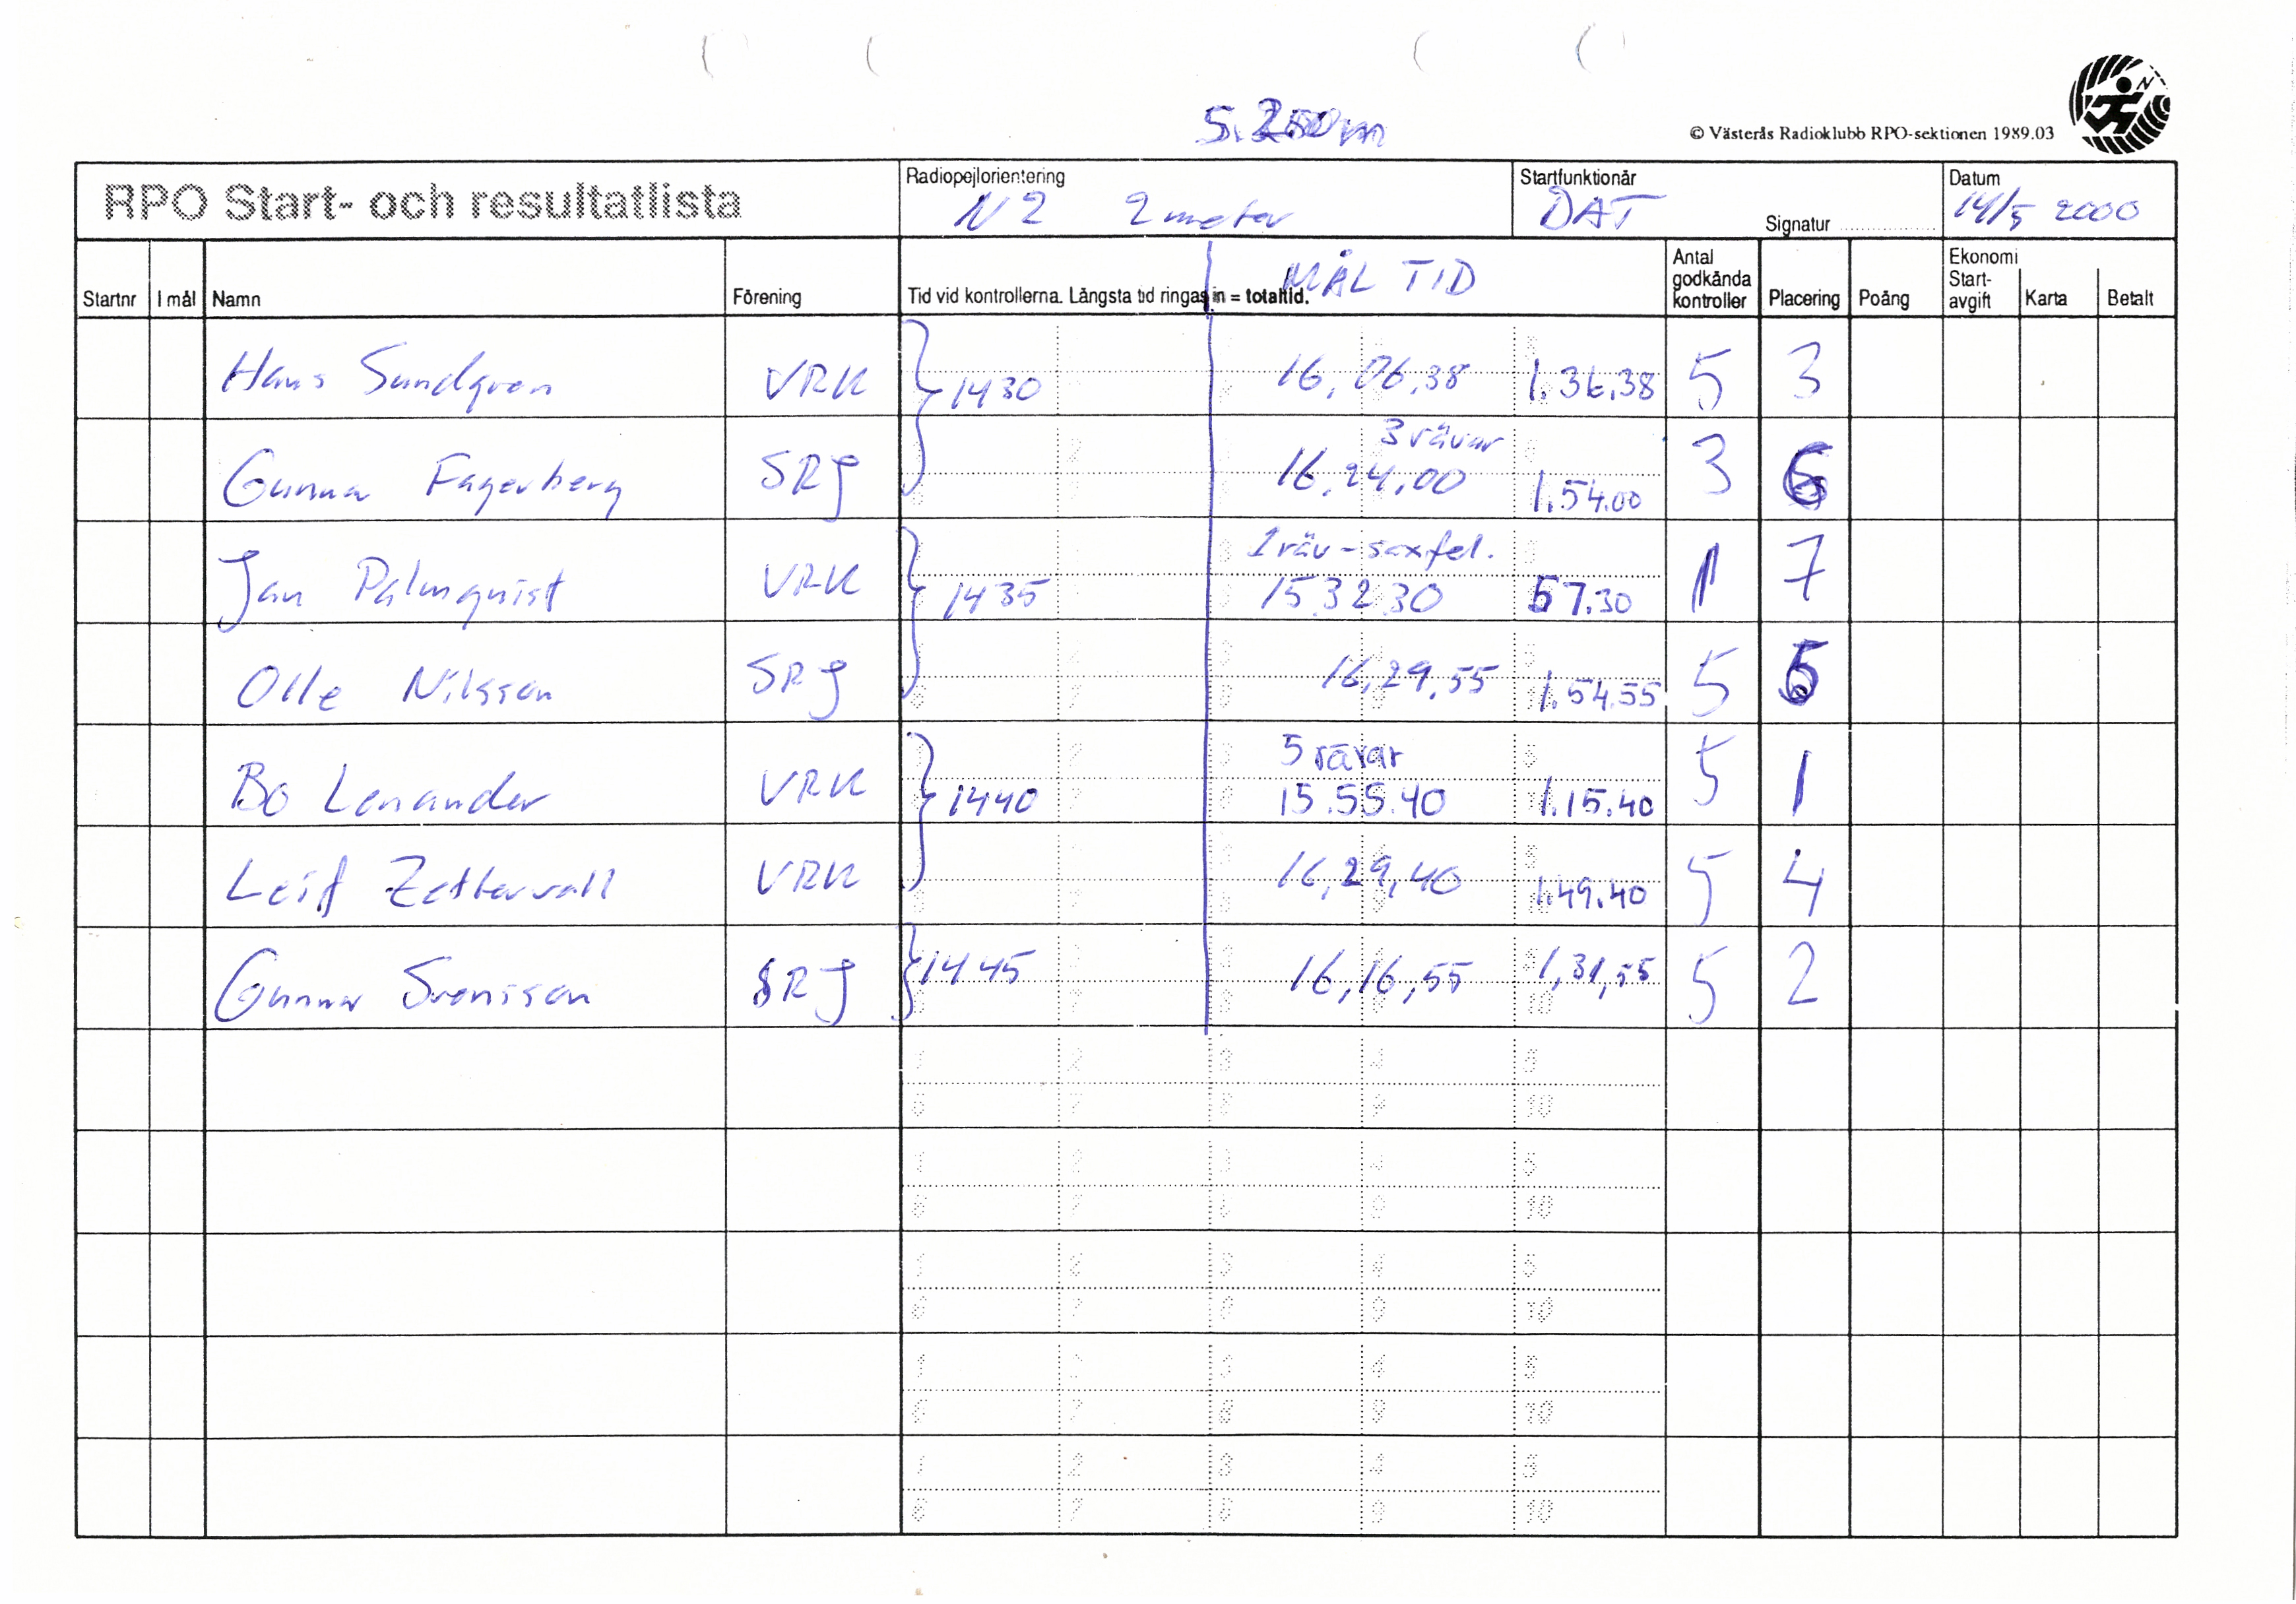 5.250m
© Västerås Radioklubb RPO-sektionen 1989.03
RPO Start- och resultatlista
Radiopejlorientering
N2 2 meter
Startfunktionär
DAT
Signatur
Datum
14/5 2000
Startnr I mål Namn Förening
Tid vid kontrollerna. Längsta tid ringas in = totaltid.
MÅL TID
Antal godkända kontroller
Placering Poäng
Ekonomi
Start-avgift Karta Betalt
Hans Sundgren VRK 1430 16,06,38 1.36,38 5 3
3 rävar
Gunnar Fagerberg SRJ 16,24,00 1.54.00 3 6
1 räv - saxfel.
Jan Palmquist VRK 1435 15 32 30 57.30 1 7
Olle Nilsson SRJ 16,29,55 1.54.55 5 5
5 rävar
Bo Lenander VRK 1440 15.55.40 1.15.40 5 1
Leif Zettervall VRK 16,29,40 1.49.40 5 4
Gunnar Svensson SRJ 1445 16,16,55 1,31,55 5 2
1 2 3 4 5
6 7 8 9 10
1 2 3 4 5
6 7 8 9 10
1 2 3 4 5
6 7 8 9 10
1 2 3 4 5
6 7 8 9 10
1 2 3 4 5
6 7 8 9 10